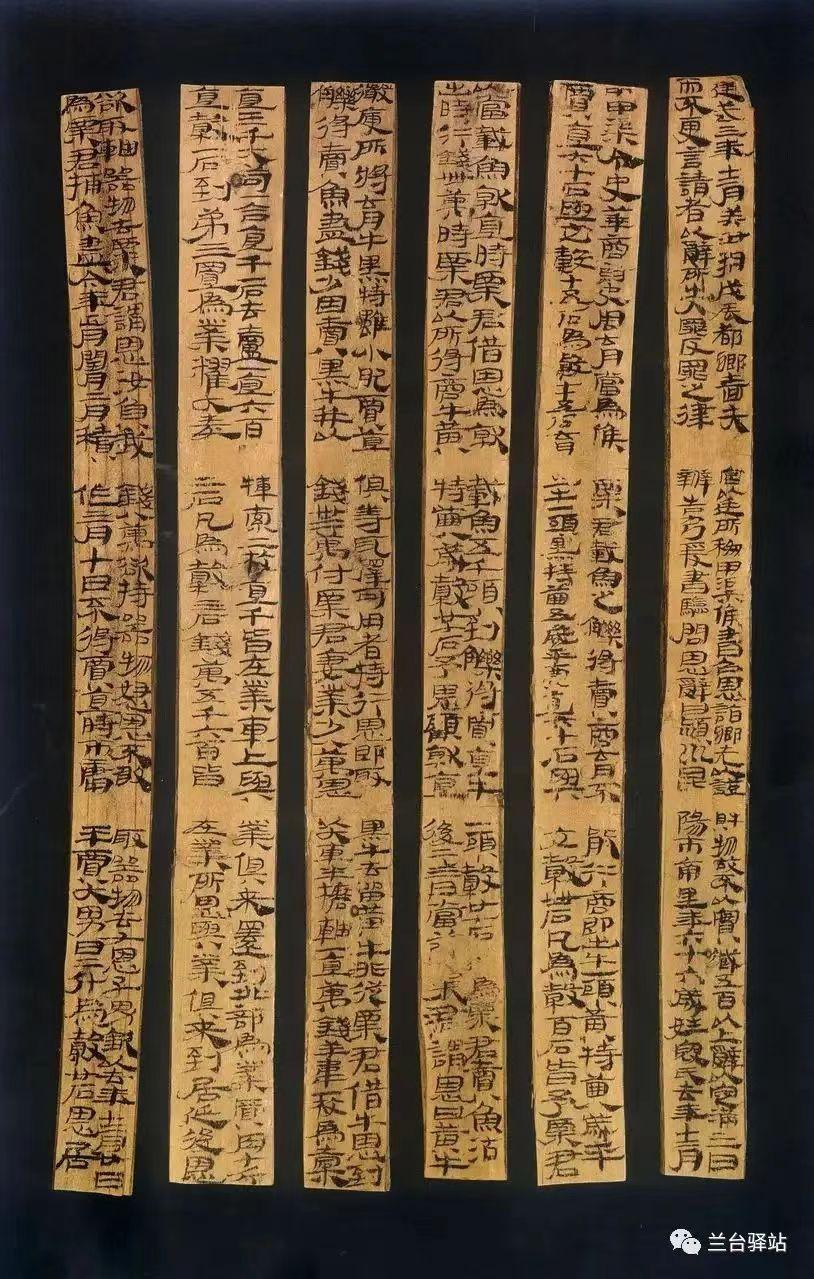 建武三年十二月癸丑朔戊辰都鄉嗇夫宮以廷所移甲渠候書召恩詣鄉先以證財物故不以實臧五百以上辭以定滿三日
而不更言請者以辭所出入罪反罪之律辨告乃爰書驗問恩辭曰潁川昆陽市南里年六十六歲姓寇氏去年十二月
中甲渠令史華商尉史周育當為候粟君載魚之觻得賣商育不能行商即出牛一頭黃特齒八歲平
賈直六十石與它穀十五石為穀七十五石育出牛一頭黑特齒五歲平賈直六十石與它穀卌石凡為穀百石皆予粟君
以當載魚就直時粟君借恩為就載魚五千頭到觻得賈直牛一頭穀廿七石約為粟君賣魚沽
出時行錢卌萬時粟君以所得商牛黃特齒八歲穀廿七石予恩顧就直後二三日當發粟君謂恩曰黃牛
微庾所將育牛黑特雖小肥賈直俱等耳擇可用者持行恩即取黑牛去留黃牛非從粟君借牛恩到
觻得賣魚盡錢少因賣黑牛并以錢卅二萬付粟君妻業少八萬恩以大車半軸一直萬錢羊韋一枚為橐
直三千大笥一合直千一石去盧一直六百索二枚直千皆在業車上與業俱來還到北部為業買肉十斤
直穀一石到第三置為業糴大麥二石凡為穀三石錢萬五千六百皆在業所恩與業俱來到居延後恩
欲取軸器物去粟君謂恩汝負我錢八萬欲持器物怒恩不敢取器物去又恩子男欽以去年十二月廿日
為粟君捕魚盡今年正月閏月二月積作三月十日不得賈直時市庸平賈大男日二斗為穀廿石恩居
兰台驿站